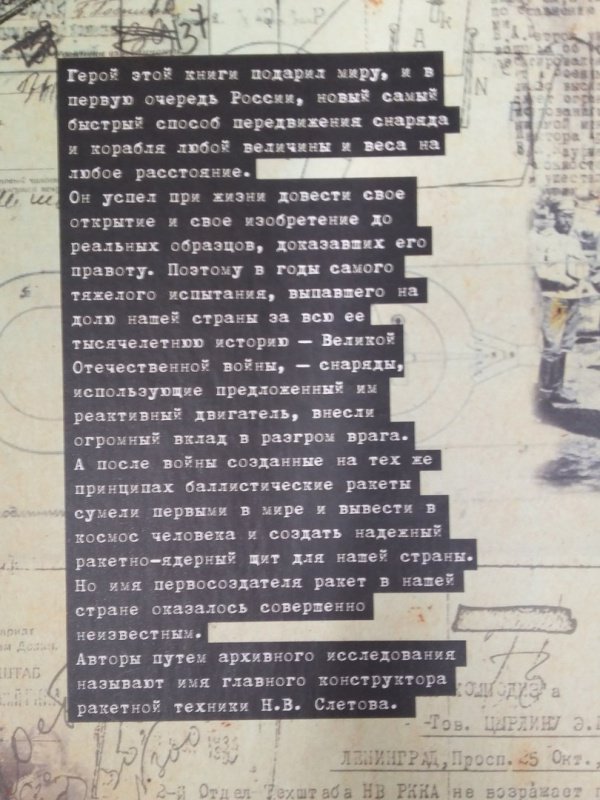 Герой этой книги подарил миру, и в
первую очередь России, новый самый
быстрый способ передвижения снаряда
и корабля любой величины и веса на
любое расстояние.
Он успел при жизни довести свое
открытие и свое изобретение до
реальных образцов, доказавших его
правоту. Поэтому в годы самого
тяжелого испытания, выпавшего на
долю нашей страны за всю ее
тысячелетнюю историю — Великой
Отечественной войны, — снаряды,
использующие предложенный им
реактивный двигатель, внесли
огромный вклад в разгром врага.
А после войны созданные на тех же
принципах баллистические ракеты
сумели первыми в мире и вывести в
космос человека и создать надежный
ракетно-ядерный щит для нашей страны.
Но имя первосоздателя ракет в нашей
стране оказалось совершенно
неизвестным.
Авторы путем архивного исследования
называют имя главного конструктора
ракетной техники Н.В. Слетова.
Тов. ЦЫРЛИНУ Э.
ЛЕНИНГРАД, Просп. 25 Окт.,
2-й Отдел Техштаба НВ РККА не возражает